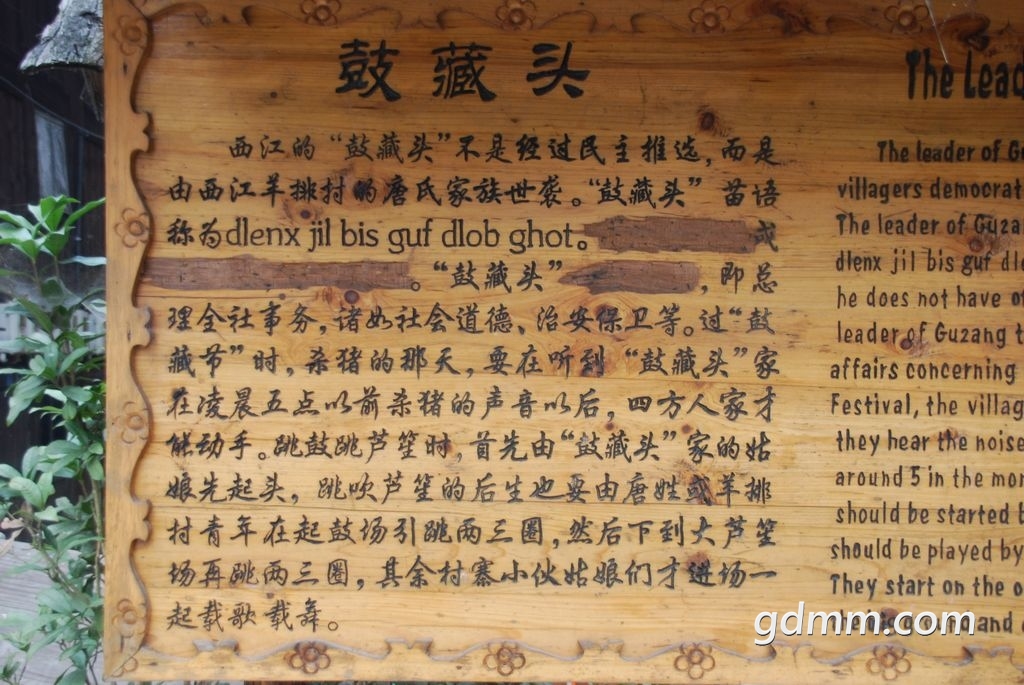 鼓藏头
西江的“鼓藏头”不是经过民主推选，而是
由西江羊排村的唐氏家族世袭。“鼓藏头”苗语
称为dlenx jil bis guf dlob ghot。
。“鼓藏头”，即总
理全社事务，诸如社会道德、治安保卫等。过“鼓
藏节”时，杀猪的那天，要在听到“鼓藏头”家
在凌晨五点以前杀猪的声音以后，四方人家才
能动手。跳鼓跳芦笙时，首先由“鼓藏头”家的姑
娘先起头，跳吹芦笙的后生也要由唐姓或羊排
村青年在起鼓场引跳两三圈，然后下到大芦笙
场再跳两三圈，其余村寨小伙姑娘们才进场一
起载歌载舞。
The Lead
The leader of Gu
villagers democrat
The leader of Guza
dlenx jil bis guf dl
he does not have
leader of Guzang
affairs concerning
Festival, the villag
they hear the noise
around 5 in the mor
should be started b
should be played by
They start on the o
and
gdmm.com